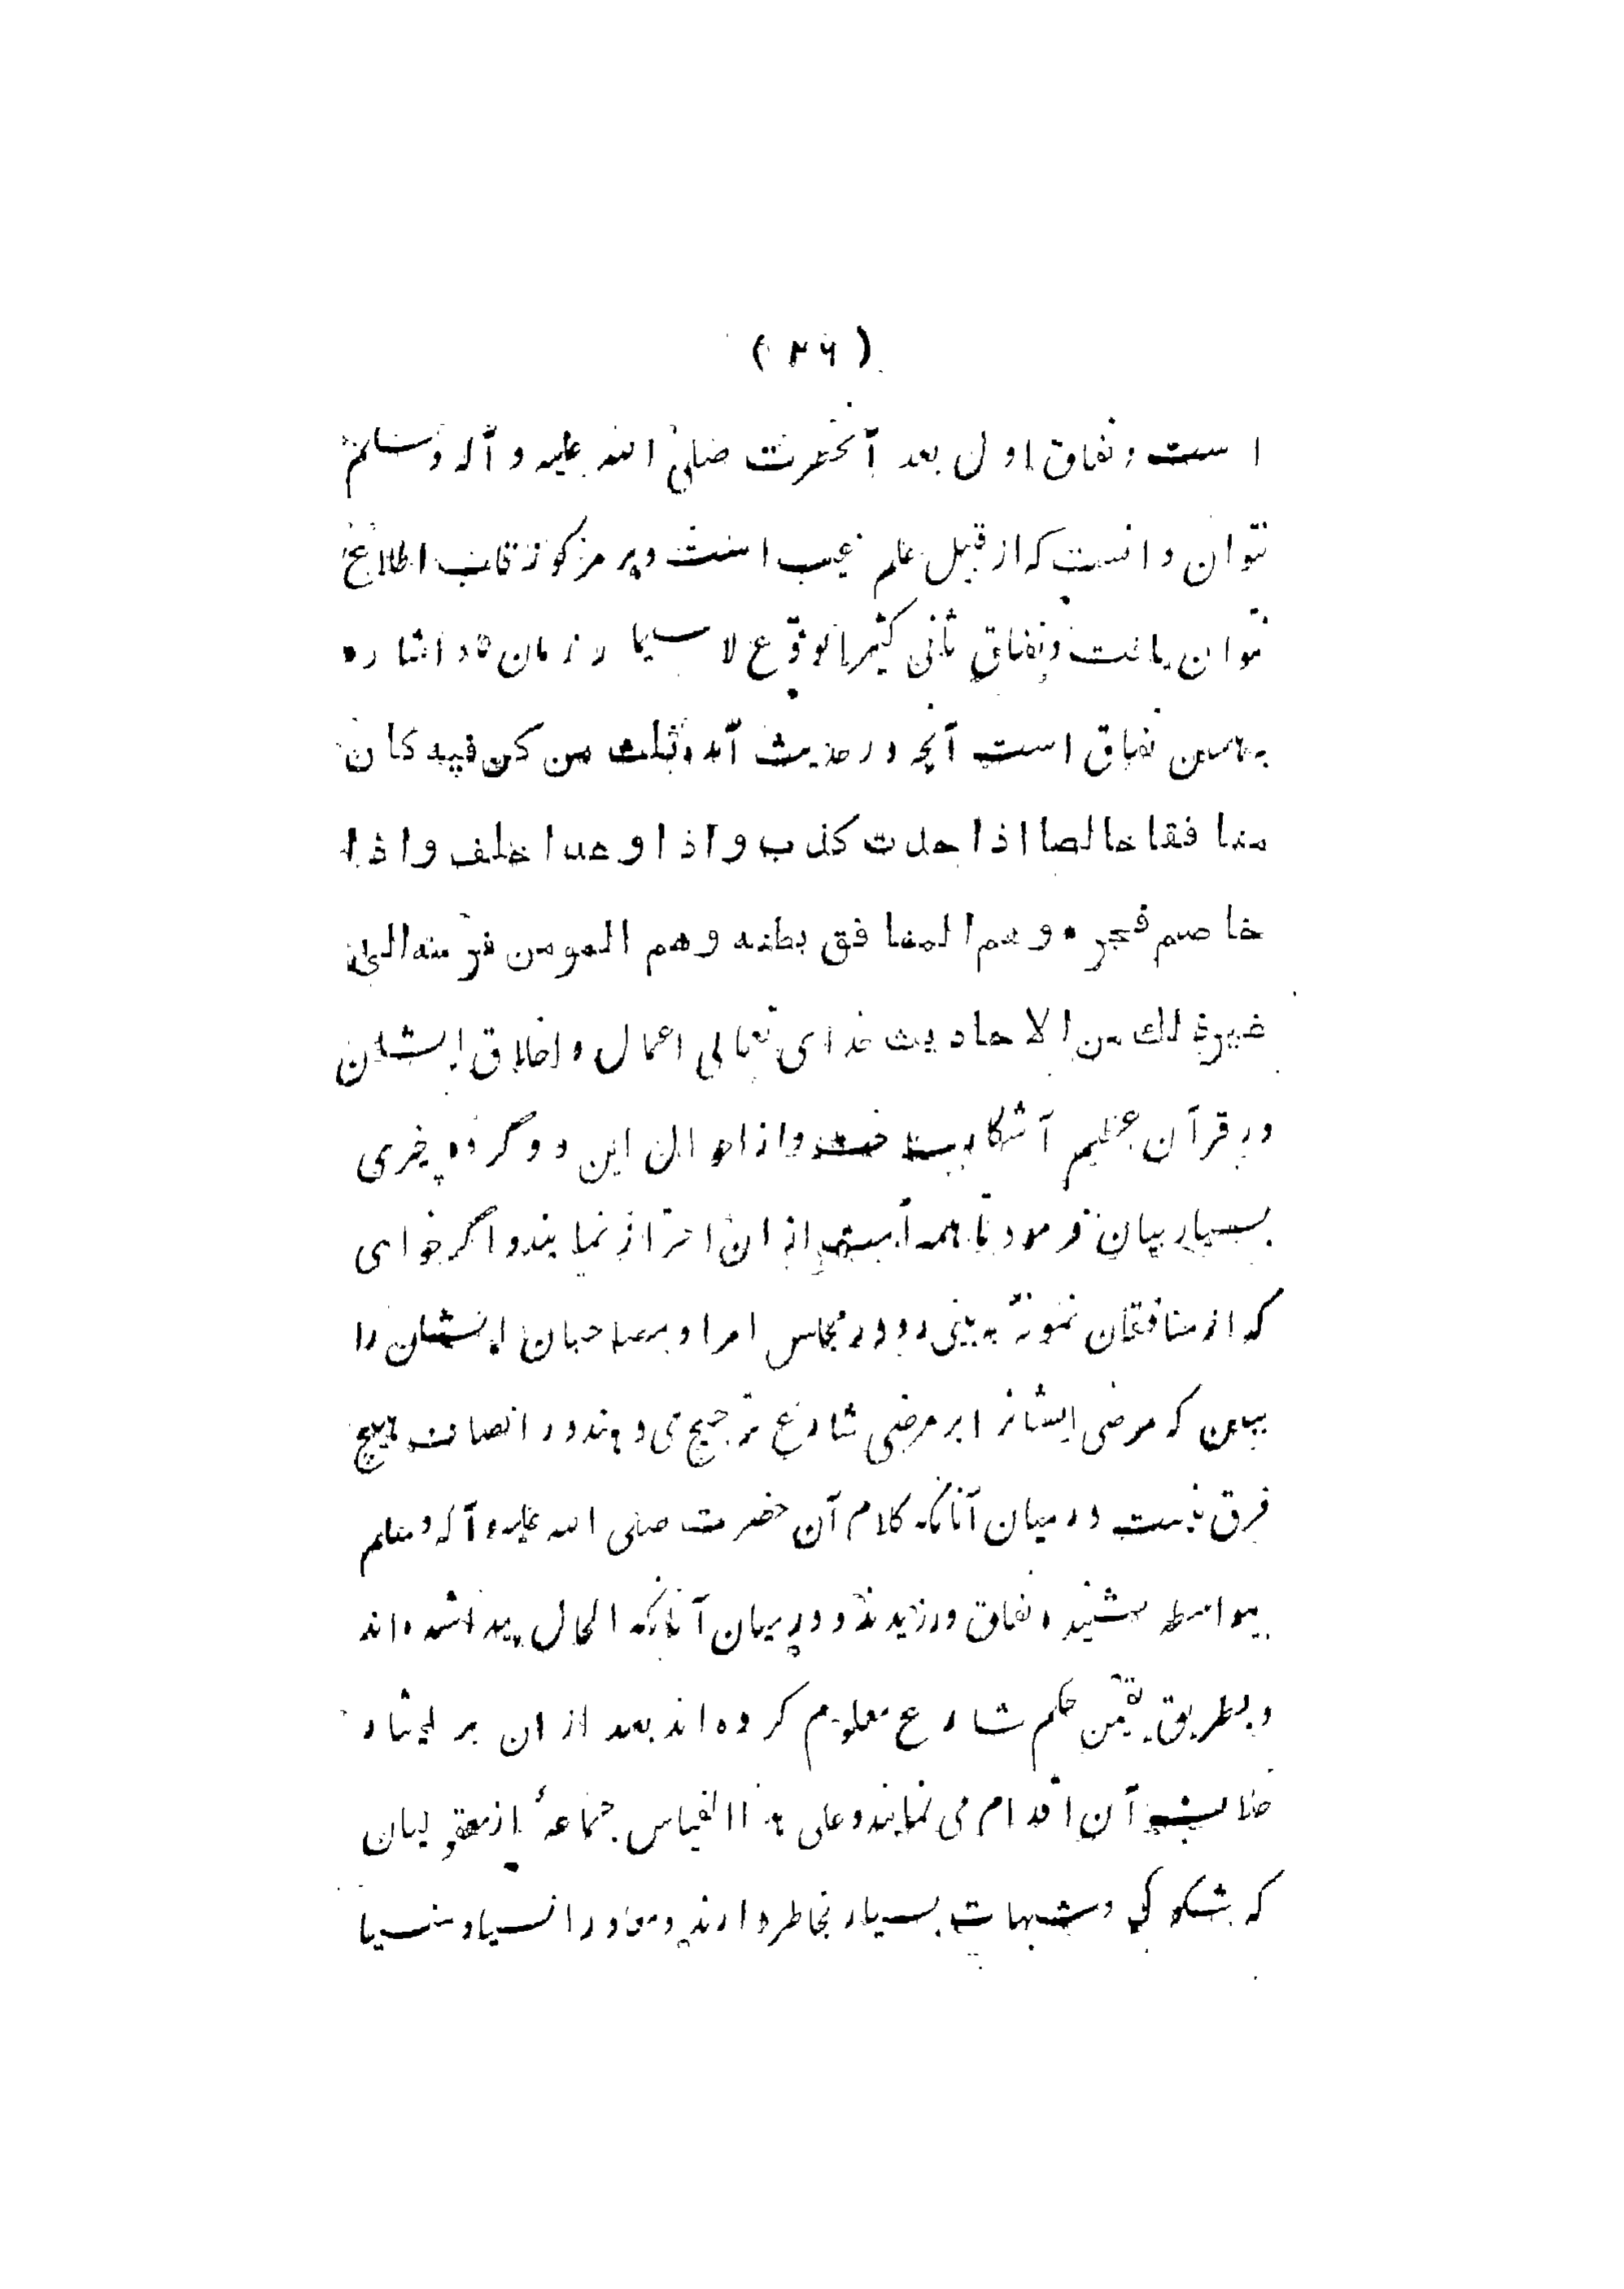 ( ۲۶ )
است و نفاق اول بعد آنحضرت صلی الله علیه و آله وسلم
نتوان دانست که از قبیل علم غیب است و بر مرکوز قلب اطلاع
نتوان یافت و نفاق ثانی کثیر الوقوع لا سیما در زمان ما و اشاره
بهمین نفاق است آنچه در حدیث آمده ثلث من کن فیه کان
منافقا خالصا اذا حدث کذب و اذا وعد اخلف و اذا
خاصم فجر * وهم المنافق بطنه وهم المومن فرسه الی
غیر ذلك من الاحادیث خدای تعالی اعمال و اخلاق ایشان
در قرآن عظیم آشکار ساخت و از احوال این دو گروه چیزی
بسیار بیان فرمود تا همه امت از ان احتراز نمایند و اگر خواهی
که از منافقان نمونهٔ به بینی رو در مجلس امرا و مصاحبان ایشان را
ببین که مرضی ایشانرا بر مرضی شارع ترجیح می دهند و در انصاف هیچ
فرق نیست در میان آنانکه کلام آن حضرت صلی الله علیه و آله وسلم
بیواسطه شنیده نفاق ورزیدند و در میان آنانکه الحال پیدا شده اند
و بطریق یقین حکم شارع معلوم کرده اند بعد از ان بر ایثار
خلاف آن اقدام می نمایند و علی هذا القیاس جماعهٔ از معقولیان
که شکوک و شبهات بسیار بخاطر دارند و معاد را نسیا و منسیا